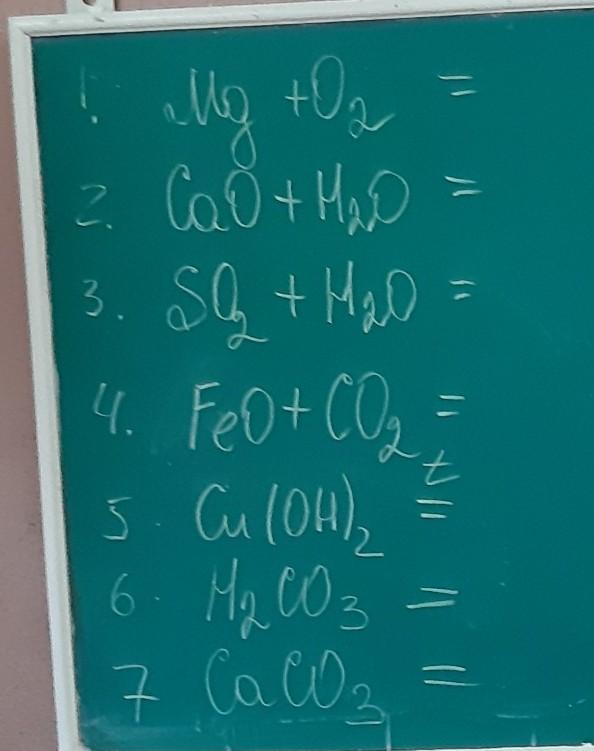 1. Mg + O2 =
2. CaO + H2O =
3. SO2 + H2O =
4. FeO + CO2 =
t
5. Cu(OH)2 =
6. H2CO3 =
7 CaCO3 =